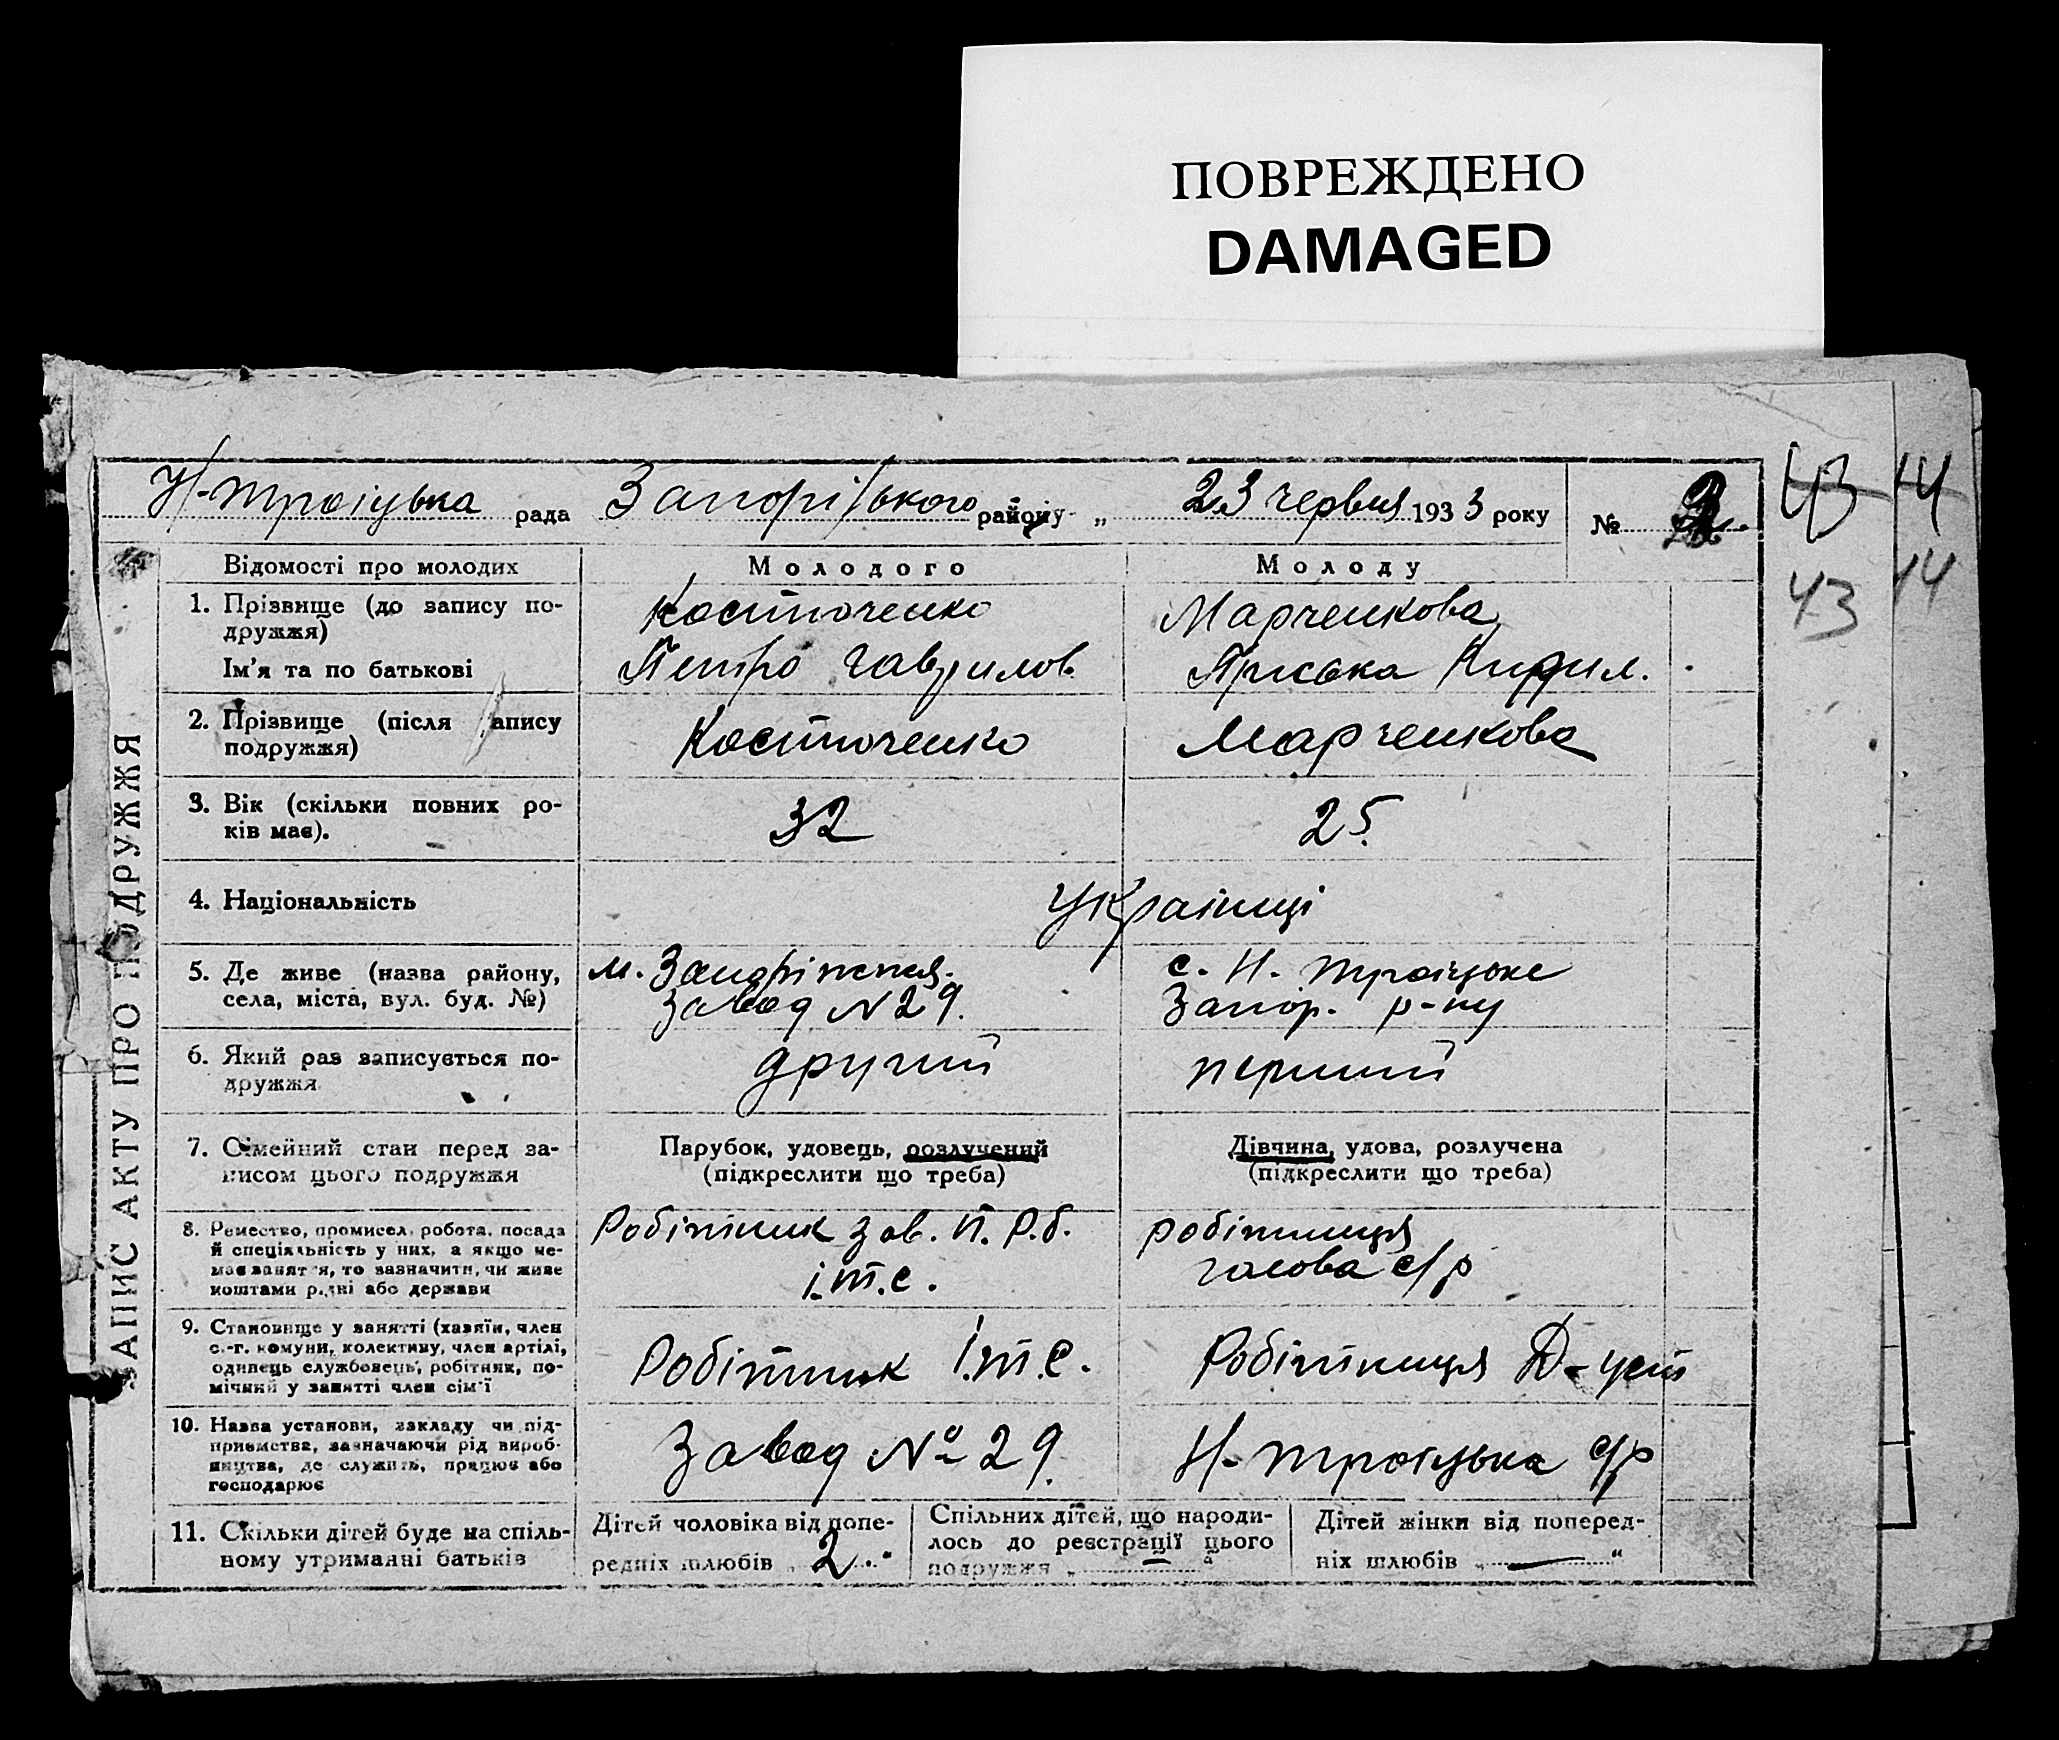 ПОВРЕЖДЕНО
DAMAGED
Н-Троіцька рада Запоріського району „ 23 червня 1933 року №
43 14
43 14
ЗАПИС АКТУ ПРО ПОДРУЖЖЯ
Відомості про молодих Молодого Молоду
1. Прізвище (до запису по-
дружжя)
Костюченко Марченкова
Ім'я та по батькові Петро Гаврилов. Пріська Кирил.
2. Прізвище (після запису
подружжя)
Костюченко Марченкова
3. Вік (скільки повних ро-
ків має).
32 25.
4. Національність Українці
5. Де живе (назва району,
села, міста, вул. буд. №)
м. Запоріжжя.
Завод N 29.
с. Н. Троіцьке
Запор. р-ну
6. Який раз записується по-
дружжя
другий перший
7. Сімейний стан перед за-
писом цього подружжя
Парубок, удовець, розлучений
(підкреслити що треба)
Дівчина, удова, розлучена
(підкреслити що треба)
8. Ремество, промисел, робота, посада
й спеціяльність у них, а якщо не-
має заняття, то зазначити, чи живе
коштами рідні або держави
Робітник зав. П. Р.б.
і.т.с.
робітниця
голова с/р
9. Становище у занятті (хазяїн, член
с.-г. комуни, колективу, член артілі,
одинець службовець, робітник, по-
мічний у занятті член сім'ї
Робітник І.т.с. Робітниця Д-уст
10. Назва установи, закладу чи під-
приємства, зазначаючи рід вироб-
ництва, де служить, працює або
господарює
Завод № 29. Н-Троіцька с/р
11. Скільки дітей буде на спіль-
ному утриманні батьків
Дітей чоловіка від попе-
редніх шлюбів „ 2 “
Спільних дітей, що народи-
лось до реєстрації цього
подружжя „ — “
Дітей жінки від поперед-
ніх шлюбів „ — “